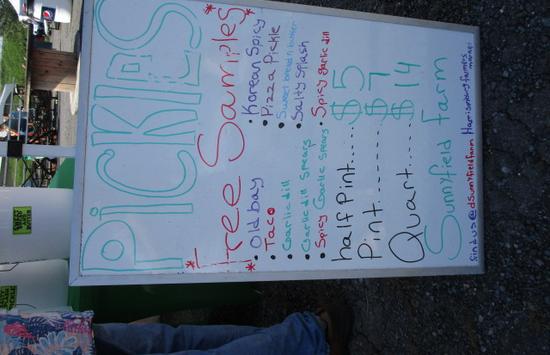 PICKLES
*Free Samples*
• Old bay
• Korean Spicy
• Taco
• Pizza Pickle
• Garlic dill
• Sweet bread n butter
• Garlic dill Spears
• Salty Splash
• Spicy Garlic Spears
• Spicy garlic dill
half Pint..... $5
Pint....... $7
Quart.... $14
Sunnyfield Farm
find us @dSunnyfieldfarm Harrisonburg farmers market